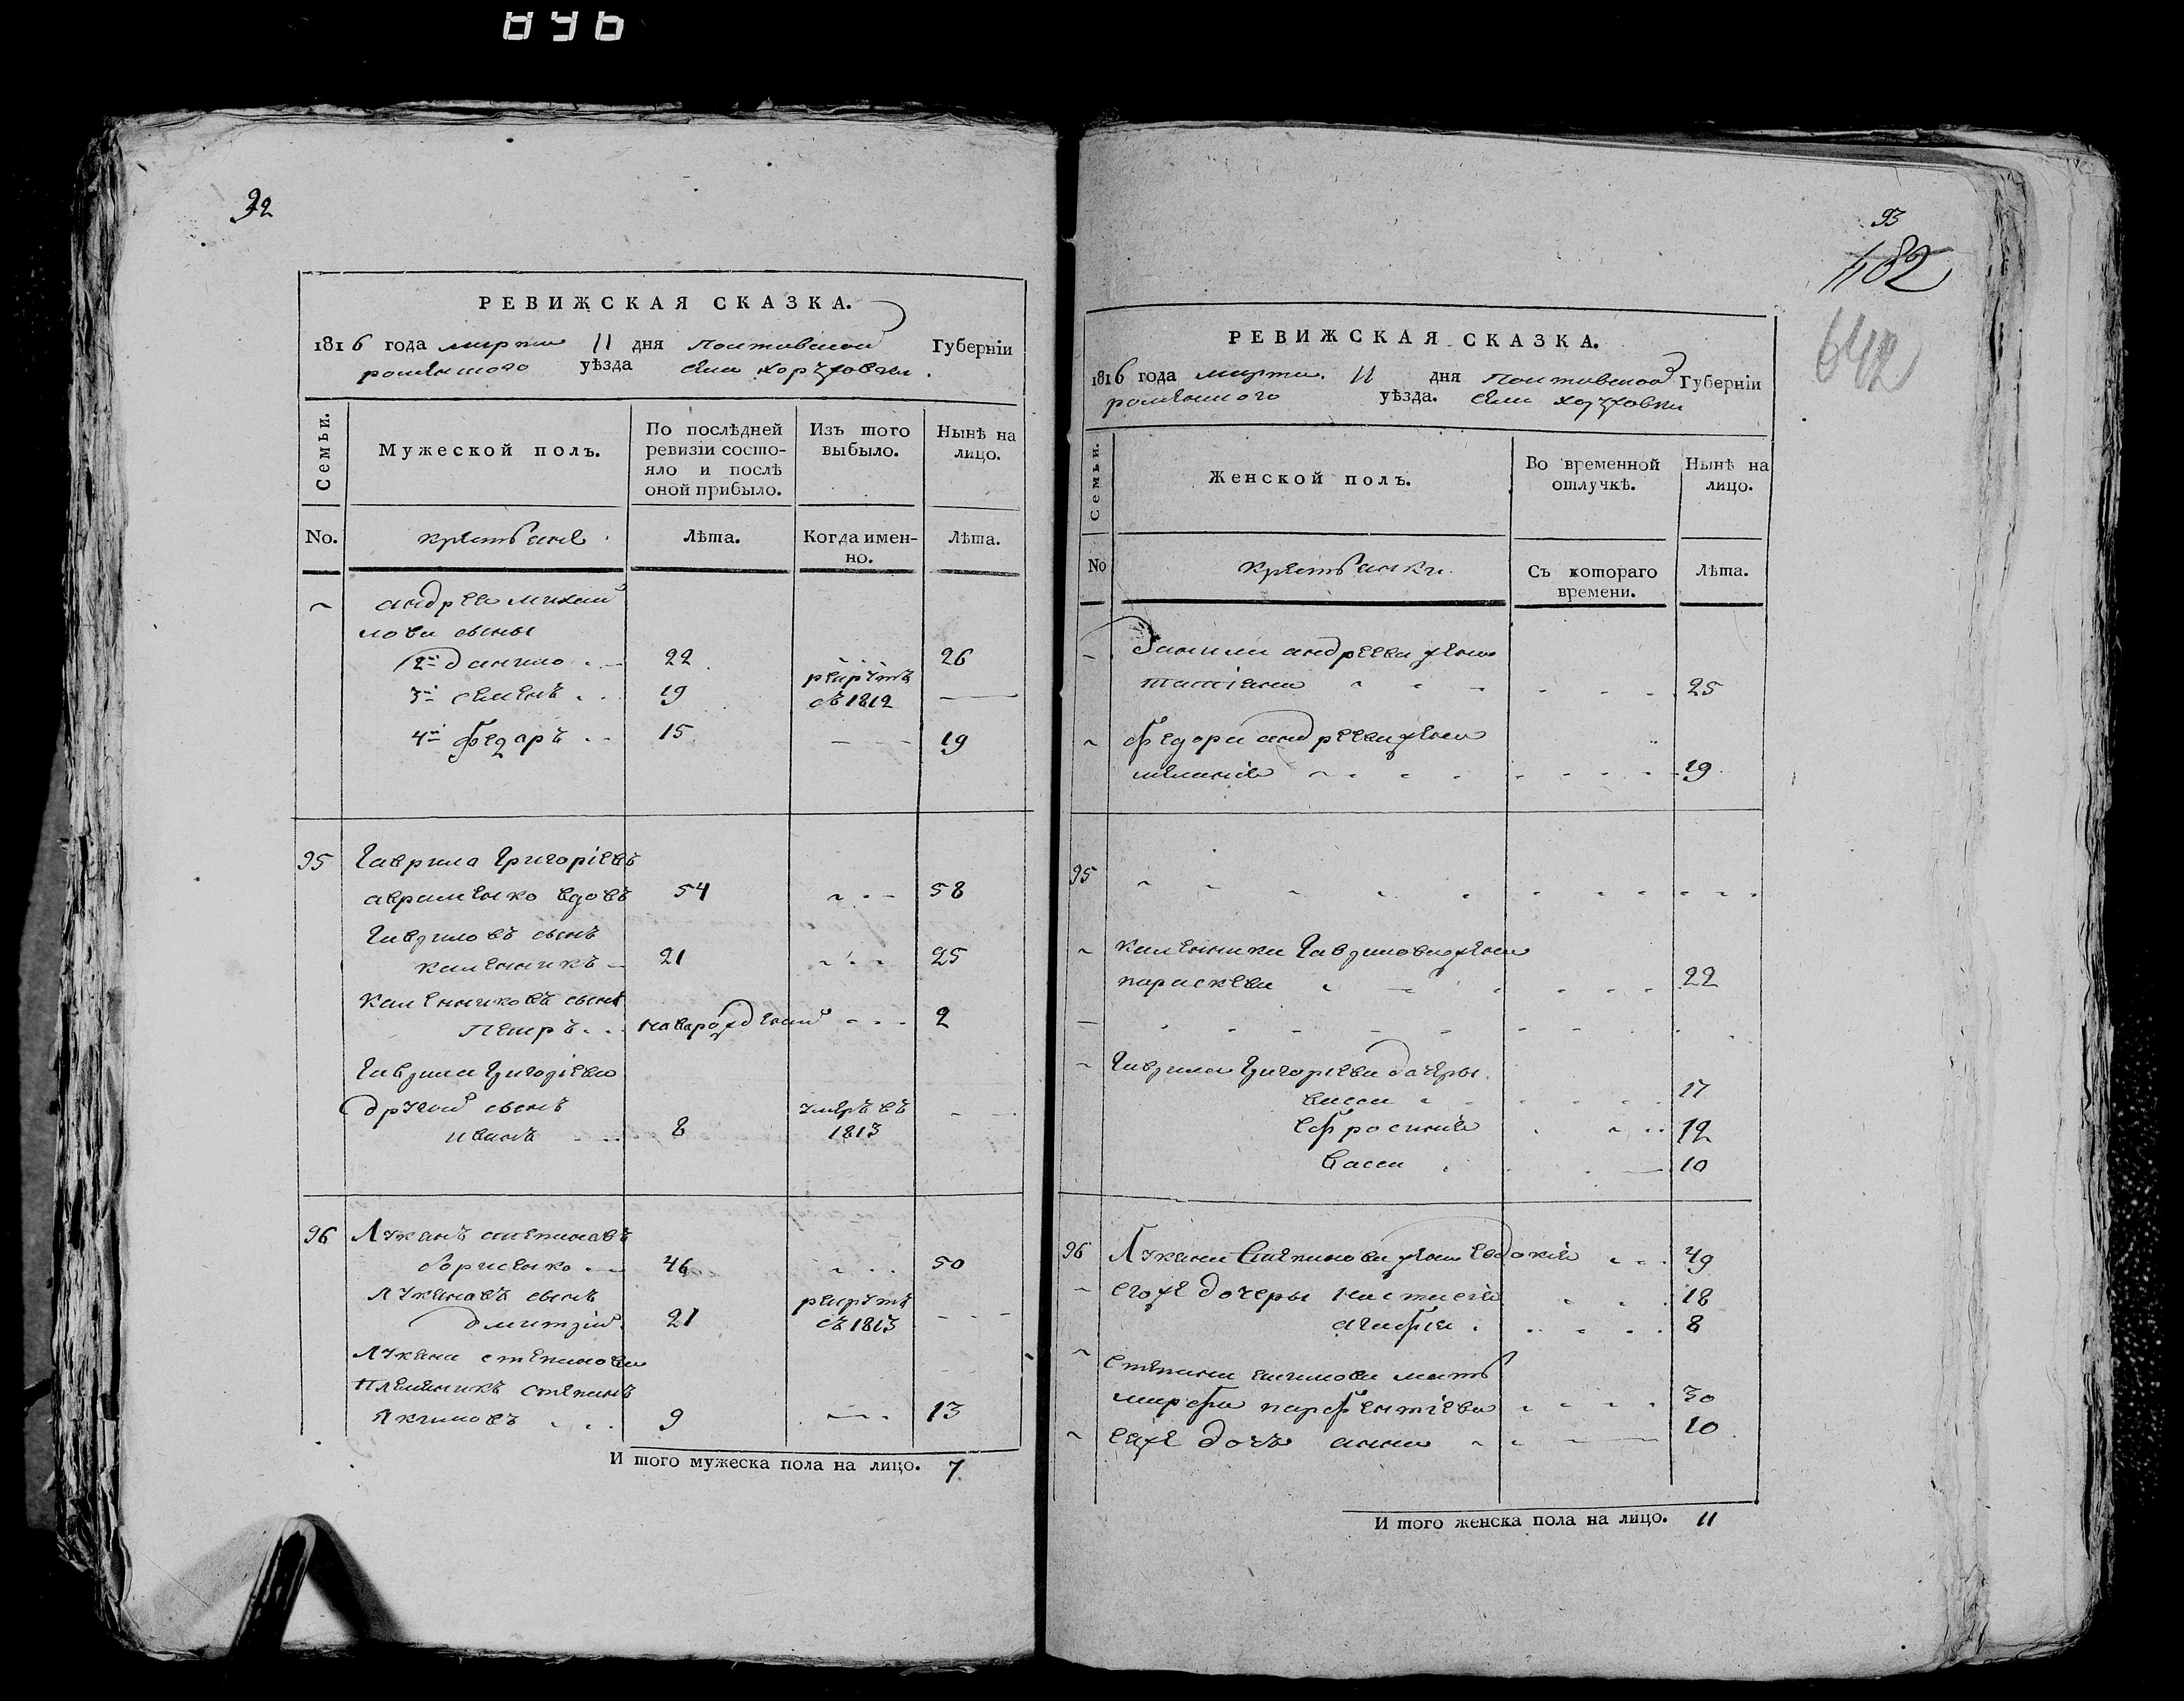 896
92
РЕВИЖСКАЯ СКАЗКА.
1816 года марта 11 дня Полтавской Губерніи
роменского уѣзда села хоружовки.
Семьи.
Мужеской полъ.
По послѣдней ревизіи состо-
яло и послѣ
оной прибыло.
Изъ того
выбыло.
Нынѣ на
лицо.
No. крестьяне Лѣта. Когда имен-
но. Лѣта.
~ андрея михай
лова сыны
2й данило 22 26
3й семенъ 19 рекрутъ
съ 1812 —
4й федаръ 15 — 19
95 Гаврила Григоріевъ
авраменко вдовъ 54 58
Гавриловъ сынъ
каленникъ 21 25
каленниковъ сынъ
Петръ новарожденый 2
Гаврила Григоріева
другой сынъ
иванъ 8 умеръ въ
1813
96 Луканъ степановъ
борисенко 46 50
лукановъ сынъ
дмитрій 21 рекрутъ
съ 1813
лукана степанова
племеникъ степанъ
якимовъ 9 13
И того мужеска пола на лицо. 7
93
482
642
РЕВИЖСКАЯ СКАЗКА.
1816 года марта 11 дня Полтавской Губерніи
роменского уѣзда. села хоружовки
Семьи.
Женской полъ.
Во временной
отлучкѣ.
Нынѣ на
лицо.
No крестьянки Съ котораго
времени. Лѣта.
~ Данила андреева жена
татіана 25
~ федора андреева жена
меланія 19
95
~ каленника Гаврилова жена
параскева 22
~ Гаврила Григорієва дочеры
васса 17
ефросинія 12
васса 10
96 Лукана Степанова жена евдокія 49
~ егоже дочеры настасія 18
агафія 8
~ степана якимова мать
марфа парфентіева 30
~ еяже дочь анна 10
И того женска пола на лицо. 11